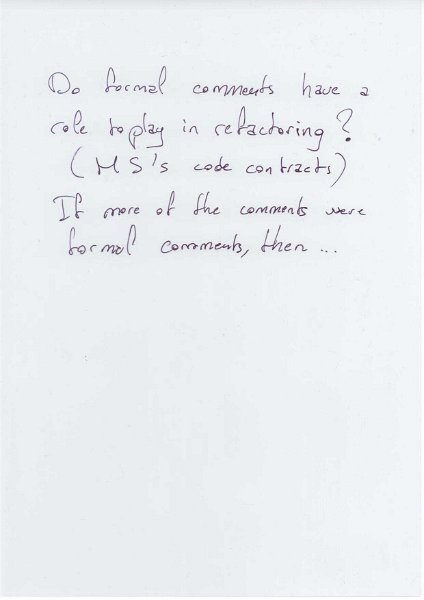 Do formal comments have a
role to play in refactoring?
(MS's code contracts)
If more of the comments were
formal comments, then ...